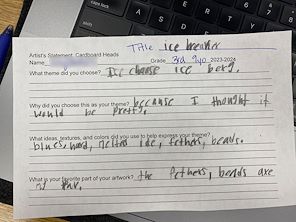 Title ice breaker
Artist's Statement: Cardboard Heads
Name
Grade 3rd 9yo 2023-2024
What theme did you choose? I choose ice
Why did you choose this as your theme? because I thought it
would be pretty.
What ideas, textures, and colors did you use to help express your theme?
blues, melted ice, fethers, beads.
What is your favorite part of your artwork? the fethers, beads are
my